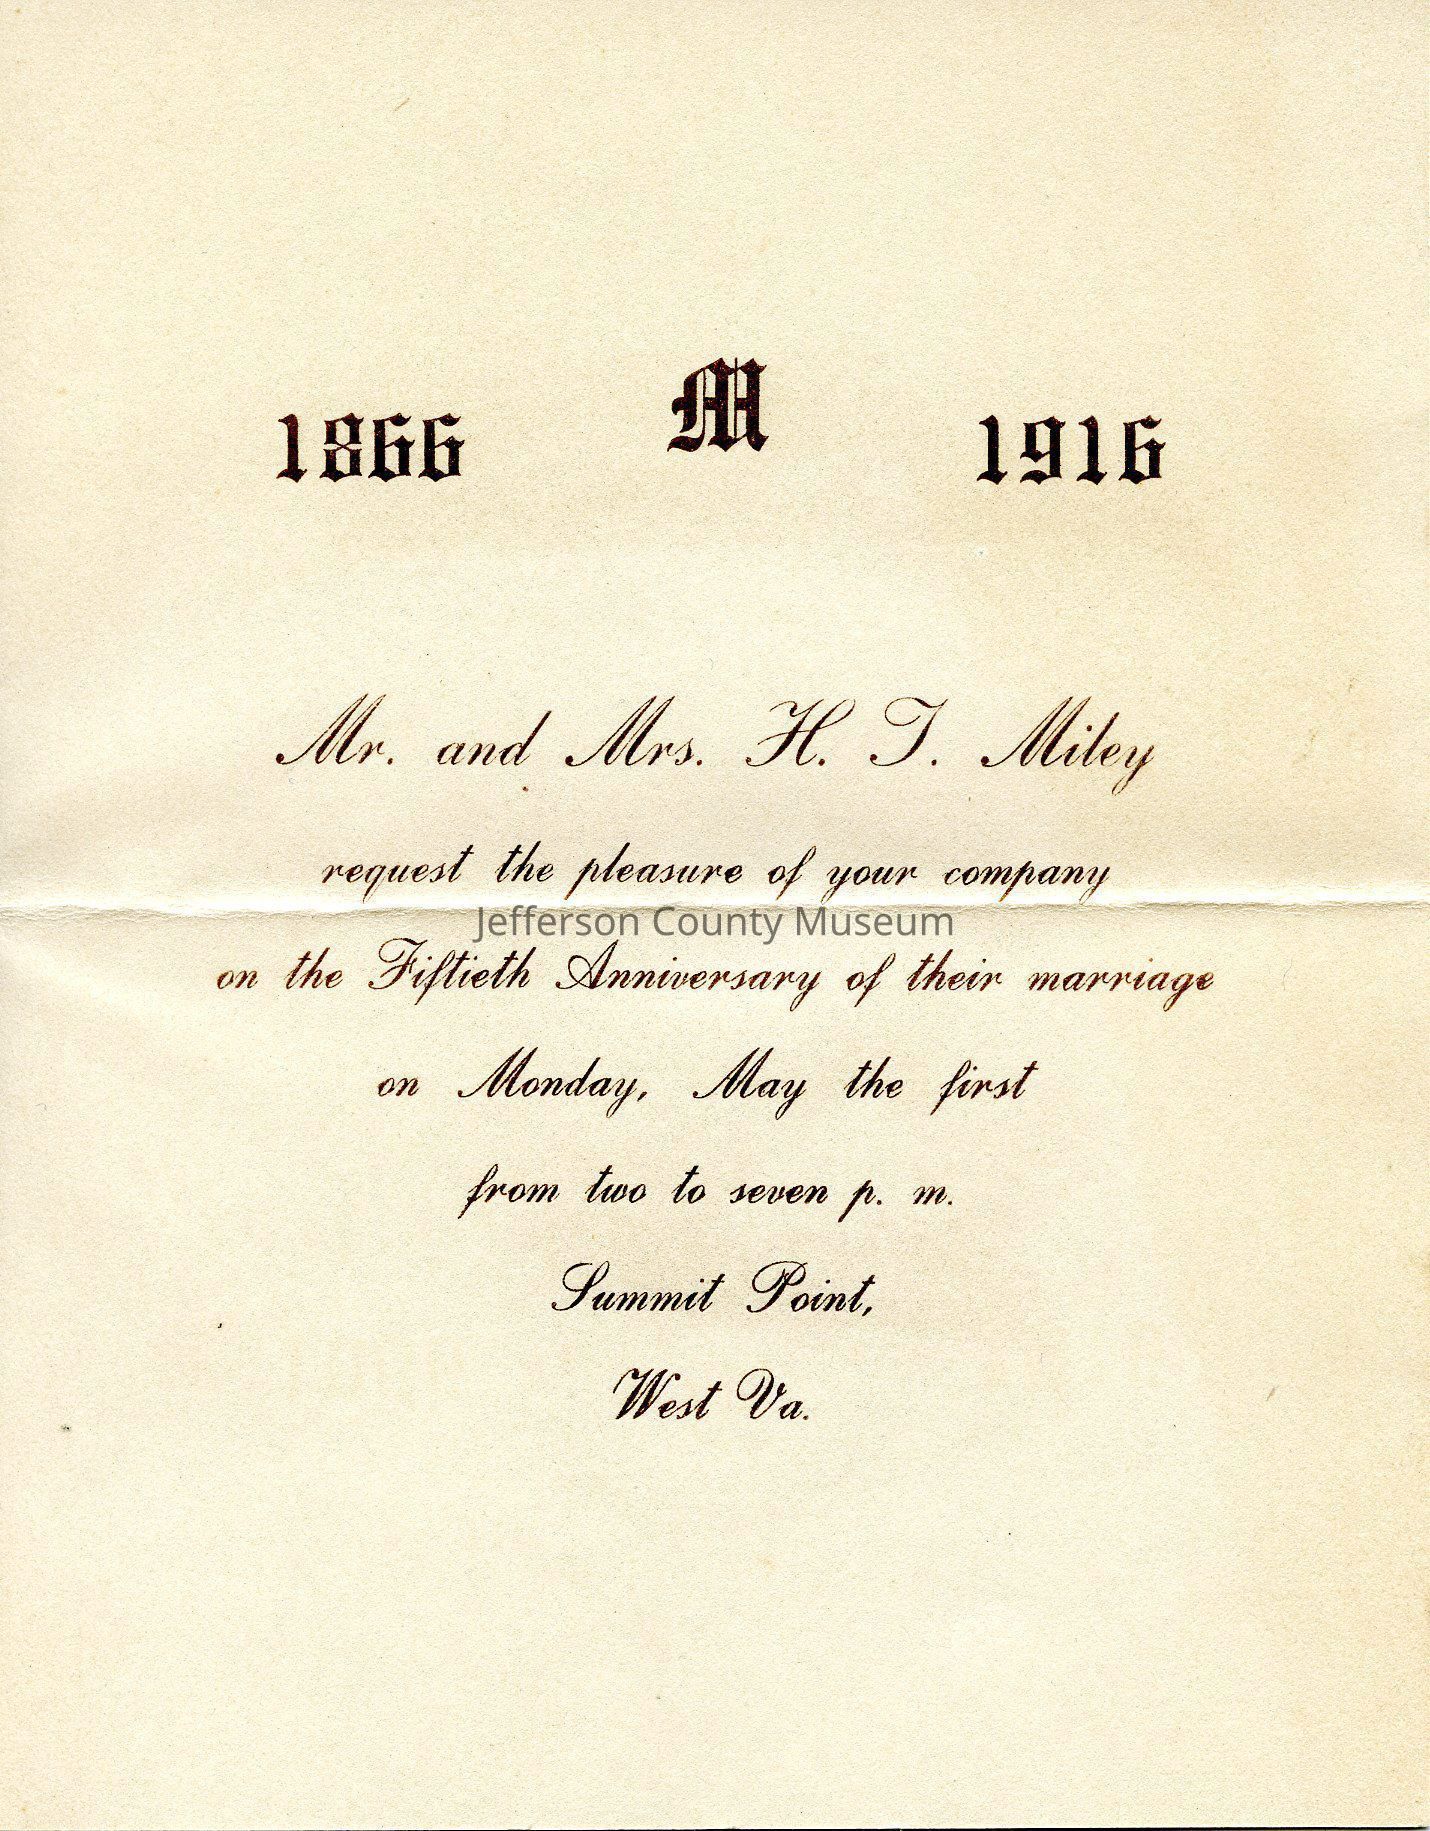 1866 M 1916
Mr. and Mrs. H. T. Miley
request the pleasure of your company
Jefferson County Museum
on the Fiftieth Anniversary of their marriage
on Monday, May the first
from two to seven p. m.
Summit Point,
West Va.